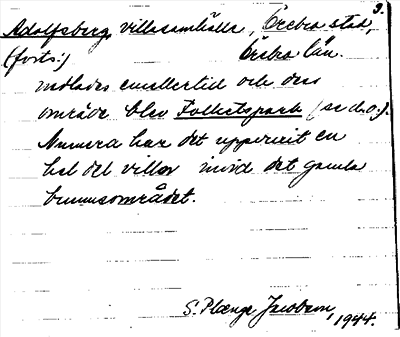 3.
Adolfsberg, villasamhälle, Örebro stad,
(forts:) Örebro län.
nedlades emellertid och dess
område blev Folketspark (se d.o.).
Numera har det uppvuxit en
hel del villor invid det gamla
brunnsområdet.
S. Plænge Jacobson, 1944.